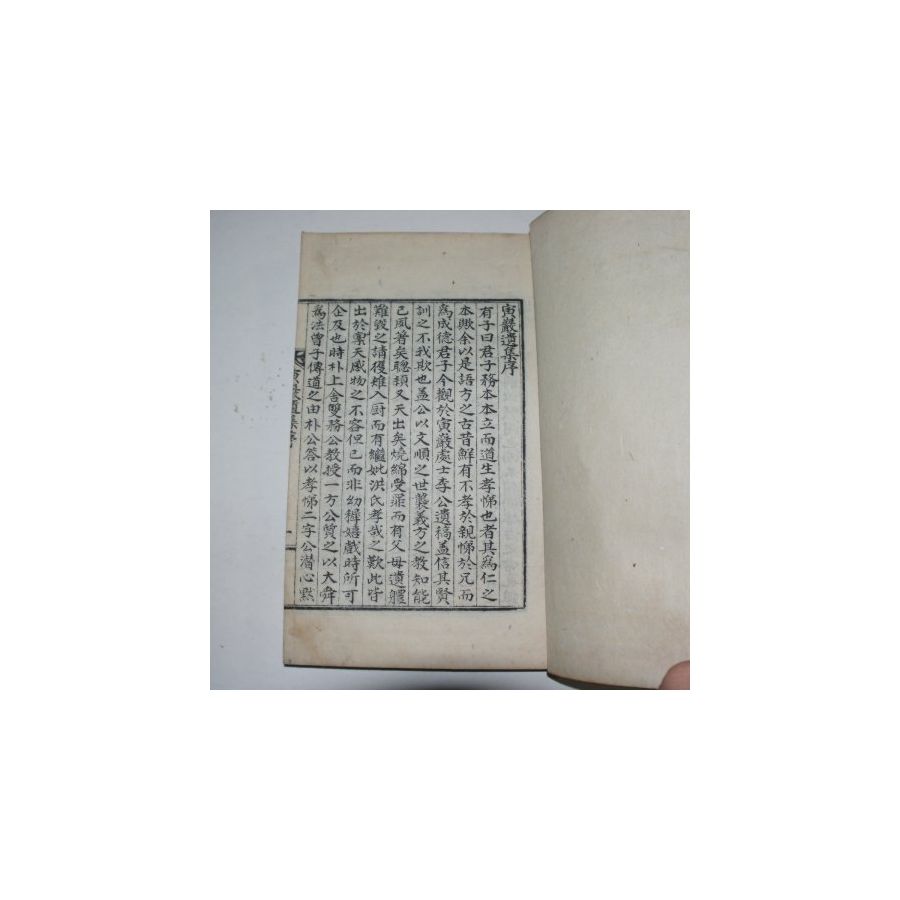 寅巖遺集序
有子曰君子務本本立而道生孝悌也者其爲仁之
本歟余以是語方之古昔鮮有不孝於親悌於兄而
爲成德君子今觀於寅巖處士李公遺稿盖信其賢
訓之不我欺也盖公以文順之世襲義方之敎知能
已夙著矣聰頴又天出矣燒綿受罪而有父母遺軆
難毀之請獲雉入厨而有繼妣洪氏孝哉之歎此皆
出於稟天感物之不容但已而非幼穉嬉戱時所可
企及也時朴上舍雙務公敎授一方公質之以大舜
爲法曾子傳道之由朴公答以孝悌二字公潛心默
寅巖遺集序
一